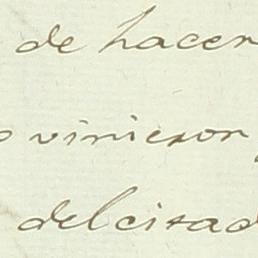 de hacer
o vinieson
del citad